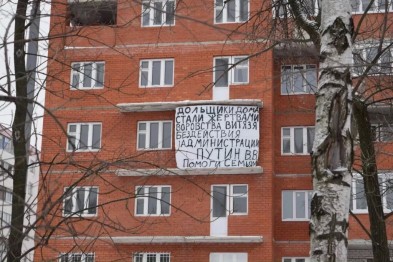 ДОЛЬЩИКИ ДОМА
СТАЛИ ЖЕРТВАМИ
ВОРОВСТВА ВИТЯЗЯ
БЕЗДЕЙСТВИЯ
АДМИНИСТРАЦИИ
ПУТИН В.В
ПОМОГИ СЕМЬЯМ